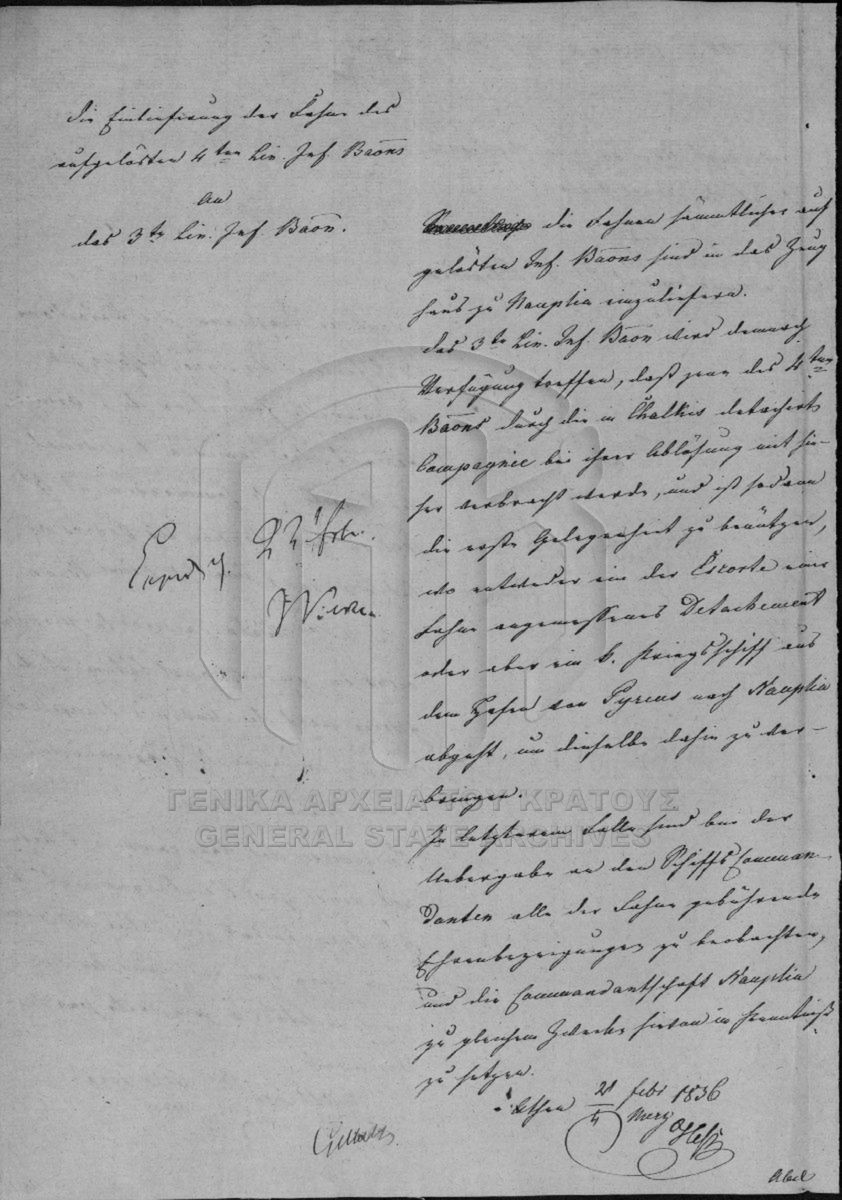 die Einlieferung der Fahne des
aufgelösten 4ten Lin. Inf. Baons
An
das 3te Lin. Inf. Baon.
die Fahnen sämmtlicher auf
gelösten Inf. Baons sind in das Zeug
haus zu Nauplia einzuliefern.
das 3te Lin. Inf. Baon wird demnach
Verfügung treffen, daß jene des 4ten
Baons durch die in Chalkis detachirte
Compagnie bei ihrer Ablösung mit hie-
her verbracht werde, und ist sodann
die erste Gelegenheit zu benützen,
wo entweder ein der Escorte einer
Fahne angemessenes Detachement
oder aber ein k. Kriegsschiff aus
dem Hafen von Pyreus nach Nauplia
abgeht, um dieselbe dahin zu ver-
bringen.
In letzterem Falle sind bei der
Uebergabe an den Schiffs Comman-
danten alle der Fahne gebührende
Ehrenbezeigungen zu beobachten,
und die Commandantschaft Nauplia
zu gleichem Zwecke hievon in Kenntniß
zu setzen.
Athen Febr 1836
März
ΓΕΝΙΚΑ ΑΡΧΕΙΑ ΤΟΥ ΚΡΑΤΟΥΣ
GENERAL STATE ARCHIVES